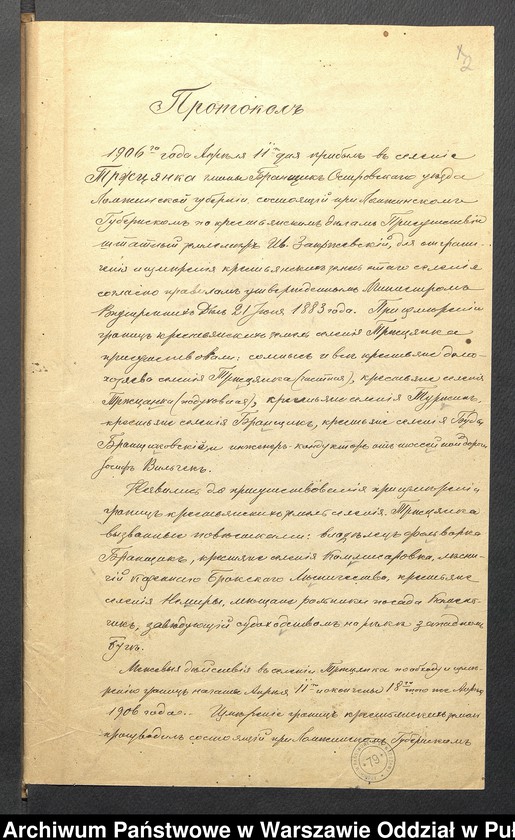 12
Протоколъ
1906го года Апрѣля 11го дня прибылъ въ селеніе
Тржцянка гмины Бранщикъ Островскаго уѣзда
Ломжинской губерніи, состоящій при Ломжинскомъ
Губернскомъ по крестьянскимъ дѣламъ Присутствіи
штатный землемѣръ Ив. Закржевскій, для отграни-
ченія и измѣренія крестьянскихъ земель этого селенія
согласно правиламъ утвержденнымъ Министромъ
Внутреннихъ Дѣлъ 21 Іюня 1883 года. При измѣреніи
границъ крестьянскихъ земель селенія Тржцянка
присутствовали: солтысъ и всѣ крестьяне домо-
хозяева селенія Тржцянка (частная), крестьяне селенія
Тржцянка (подуховная), крестьяне селенія Туринъ,
крестьяне селенія Бранщикъ, крестьяне селенія Буды
Бранщиковскія и инженеръ-кондукторъ отъ шоссейной дороги
Іосифъ
Неявились до присутствованія при измѣреніи
границъ крестьянскихъ земель селенія Тржцянка
вызванные повѣстками: владѣлецъ фольварка
Бранщикъ, крестьяне селенія Коммисаровка, лѣсни-
чій Казеннаго Брокскаго Лѣсничества, крестьяне
селенія Немиры, мѣщане рольники посада
завѣдующій судоходствомъ на рѣкѣ западномъ
Бугѣ.
Межевыя дѣйствія въ селеніи Тржцянка по обходу и измѣ-
ренію границъ начаты Апрѣля 11го и окончены 18го того же Апрѣля
1906 года. Измѣреніе границъ крестьянскихъ земель
производилъ состоящій при Ломжинскомъ Губернскомъ
79
Archiwum Państwowe w Warszawie Oddział w Puł